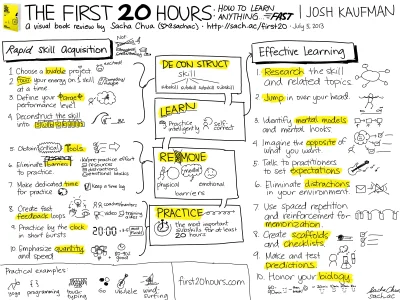 THE FIRST 20 HOURS: HOW TO LEARN ANYTHING...FAST | JOSH KAUFMAN
a visual book review by Sacha Chua (@sachac) · http://sach.ac/first20 · July 3, 2013
Rapid Skill Acquisition
1 Choose a lovable project
2. Focus your energy on 1 skill at a time
3. Define your target performance level
4. Deconstruct the skill into
5. Obtain critical Tools
6. Eliminate barriers to practice.
Before practice effort
resources
distractions
emotional blocks
7. Make dedicated time for practice
Keep a time log
8. Create fast feedback loops
video
9. Practice by the clock in short bursts
20:00
10. Emphasize quantity and speed
DECONSTRUCT
skill
subskill subskill subskill subskill
LEARN
Practice intelligently
self-correct
REMOVE
physical
mental
emotional
barriers
PRACTICE
The most important subskills for at least 20 hours
Effective Learning
1. Research the skill and related topics
2. Jump in over your head.
3. Identify mental models and mental hooks
4. Imagine the opposite of what you want
5. Talk to practitioners to set expectations
6. Eliminate distractions in your environment
7. Use spaced repetition and reinforcement for memorization
8. Create scaffolds and checklists
9. Make and test predictions.
10. Honor your biology
Practical examples
yoga
programming
touch typing
Go
ukulele
wind-surfing
first20hours.com
Sacha Chua
sach.ac